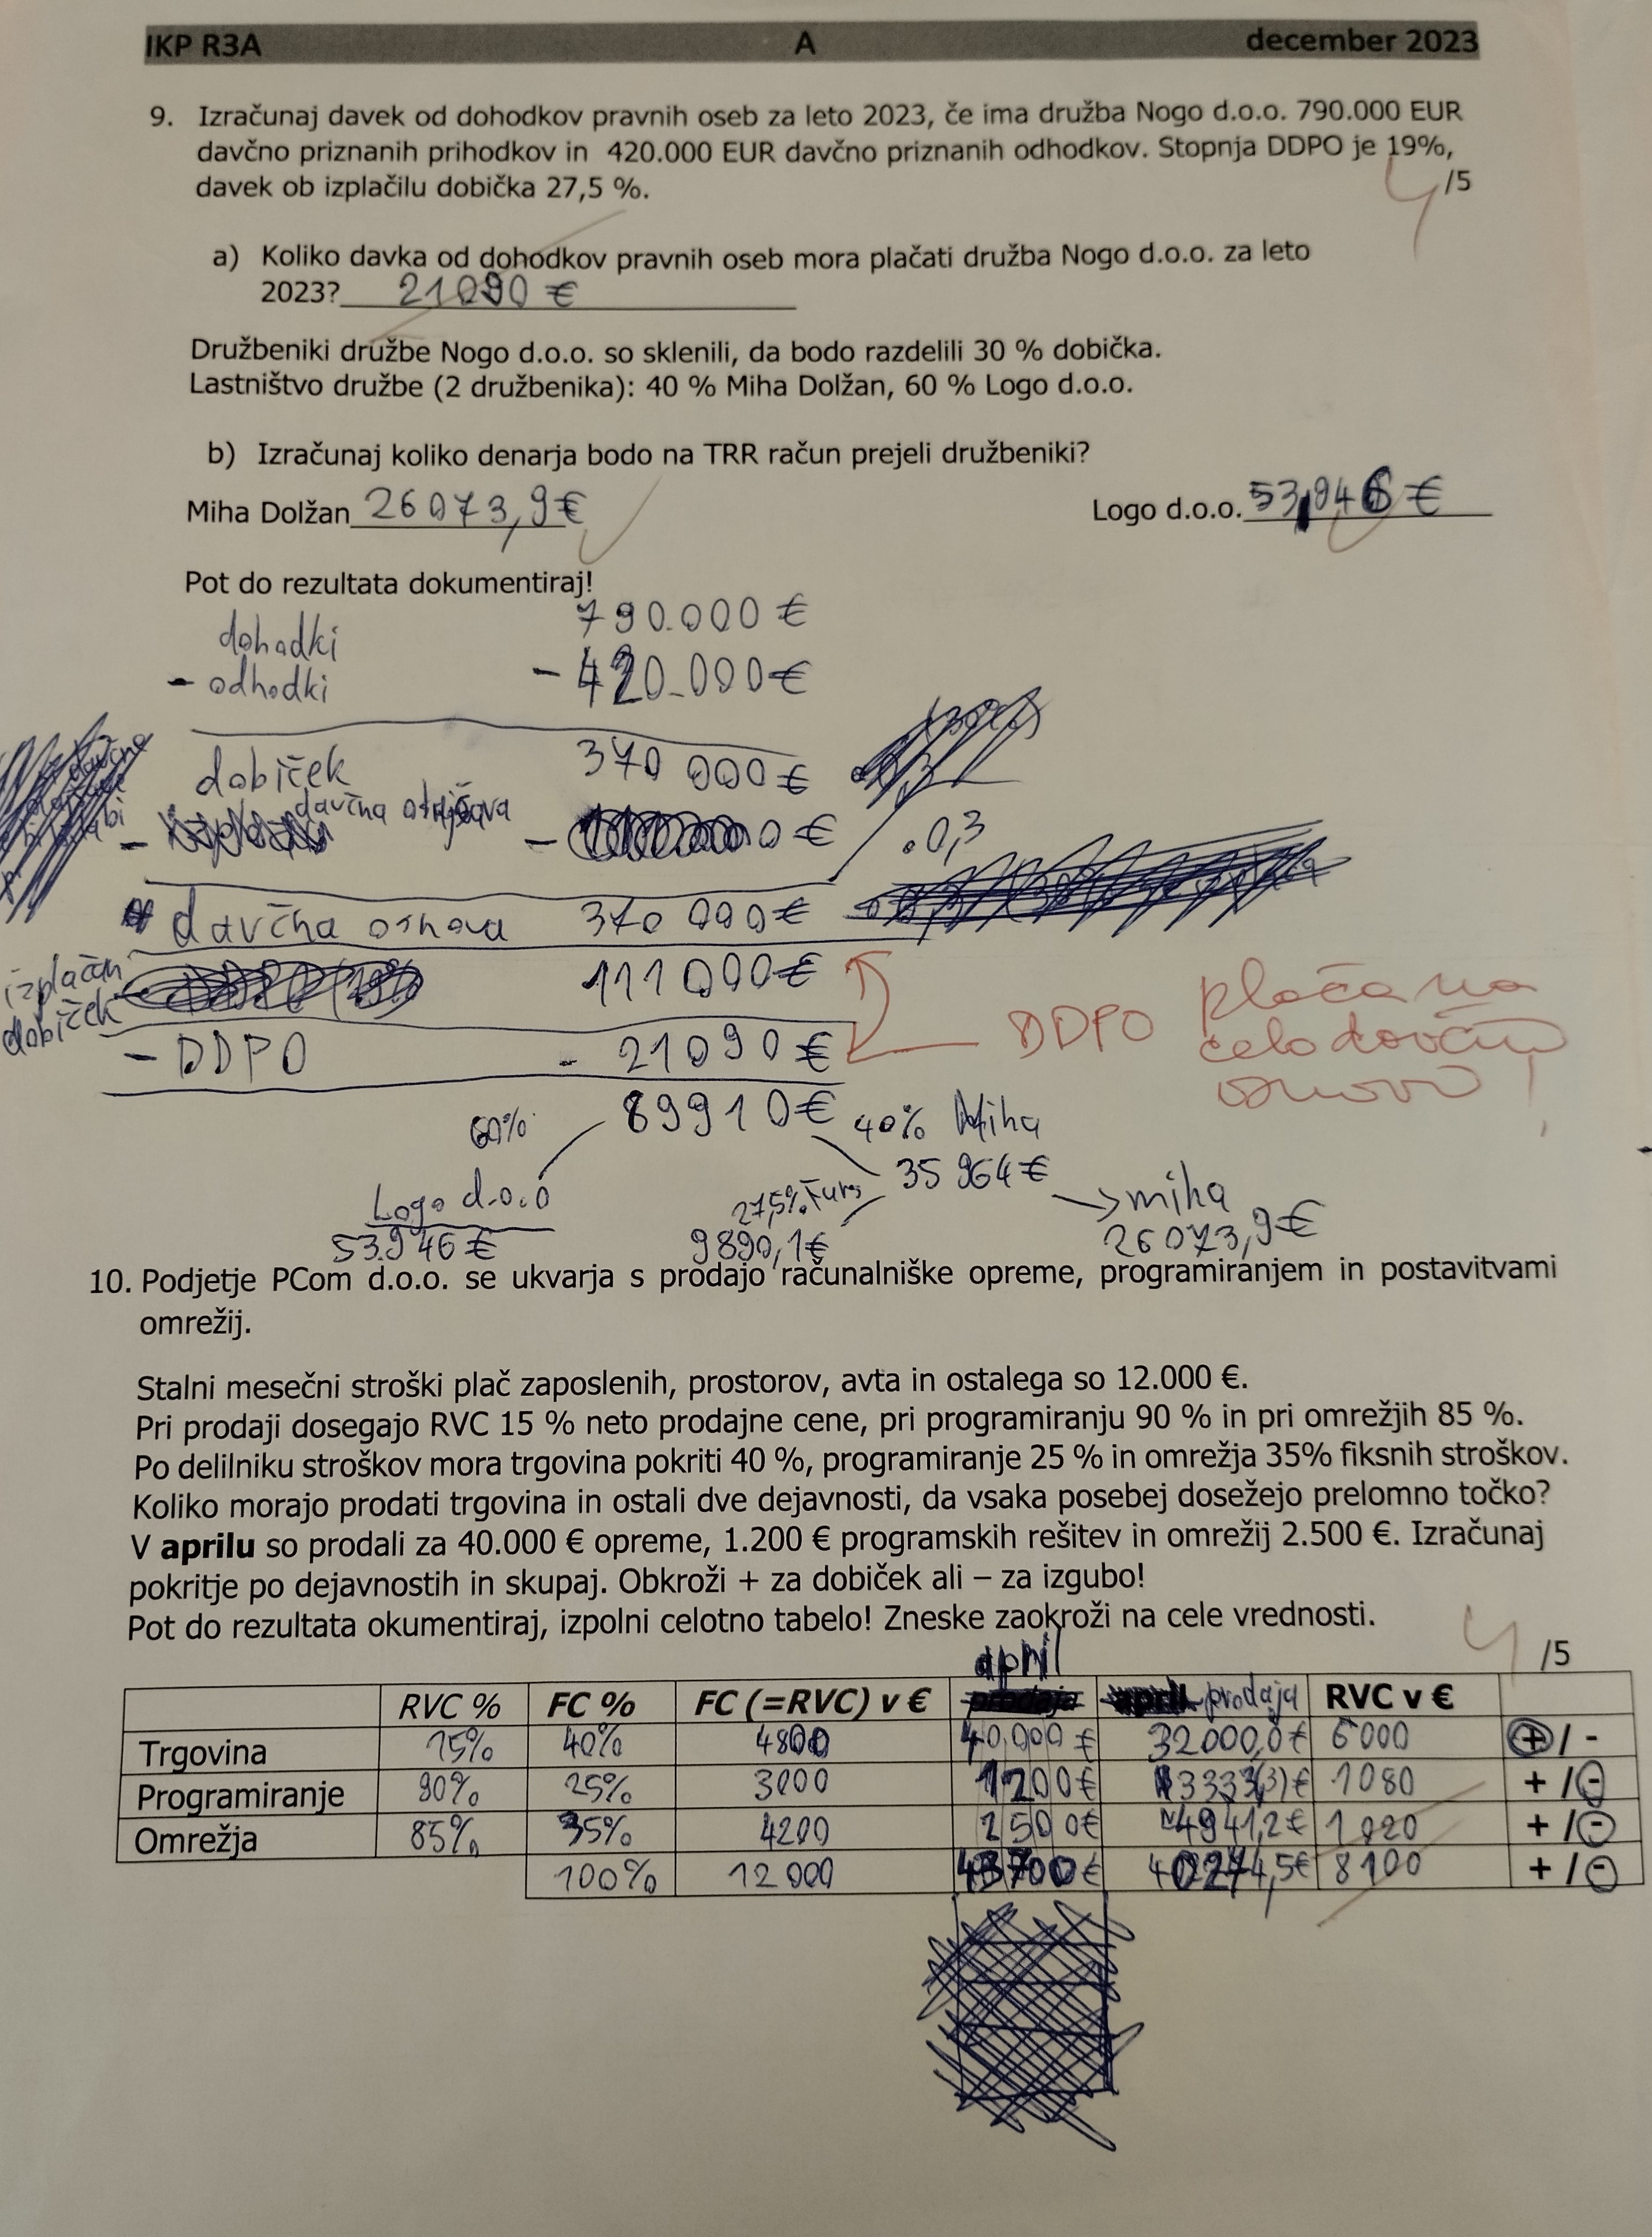 IKP R3A A december 2023
9. Izračunaj davek od dohodkov pravnih oseb za leto 2023, če ima družba Nogo d.o.o. 790.000 EUR
davčno priznanih prihodkov in 420.000 EUR davčno priznanih odhodkov. Stopnja DDPO je 19%,
davek ob izplačilu dobička 27,5 %.
4/5
a) Koliko davka od dohodkov pravnih oseb mora plačati družba Nogo d.o.o. za leto
2023? 21090 €
Družbeniki družbe Nogo d.o.o. so sklenili, da bodo razdelili 30 % dobička.
Lastništvo družbe (2 družbenika): 40 % Miha Dolžan, 60 % Logo d.o.o.
b) Izračunaj koliko denarja bodo na TRR račun prejeli družbeniki?
Miha Dolžan 26073,9€ Logo d.o.o. 53946 €
Pot do rezultata dokumentiraj!
dohodki 790.000 €
- odhodki - 420.000€
dobiček 370 000€
- davčna olajšava - 0 € .0,3
davčna osnova 370 000€
izplačan dobiček 111 000€
- DDPO - 21090€
DDPO plača na
celo davčno
osnovo!
89910€
60% 40% Miha
Logo d.o.o 35 964€
27,5% Furs → miha
53.946 € 9890,1€ 26073,9€
10. Podjetje PCom d.o.o. se ukvarja s prodajo računalniške opreme, programiranjem in postavitvami
omrežij.
Stalni mesečni stroški plač zaposlenih, prostorov, avta in ostalega so 12.000 €.
Pri prodaji dosegajo RVC 15 % neto prodajne cene, pri programiranju 90 % in pri omrežjih 85 %.
Po delilniku stroškov mora trgovina pokriti 40 %, programiranje 25 % in omrežja 35% fiksnih stroškov.
Koliko morajo prodati trgovina in ostali dve dejavnosti, da vsaka posebej dosežejo prelomno točko?
V aprilu so prodali za 40.000 € opreme, 1.200 € programskih rešitev in omrežij 2.500 €. Izračunaj
pokritje po dejavnostih in skupaj. Obkroži + za dobiček ali – za izgubo!
Pot do rezultata okumentiraj, izpolni celotno tabelo! Zneske zaokroži na cele vrednosti.
4/5
RVC % FC % FC (=RVC) v € april prodaja RVC v €
Trgovina 15% 40% 4800 40.000 € 32000,0€ 6000 + / -
Programiranje 90% 25% 3000 1200€ 3333,(3)€ 1080 + / -
Omrežja 85% 35% 4200 2500€ ~4941,2€ 1020 + / -
100% 12 000 43700€ 40274,5€ 8100 + / -